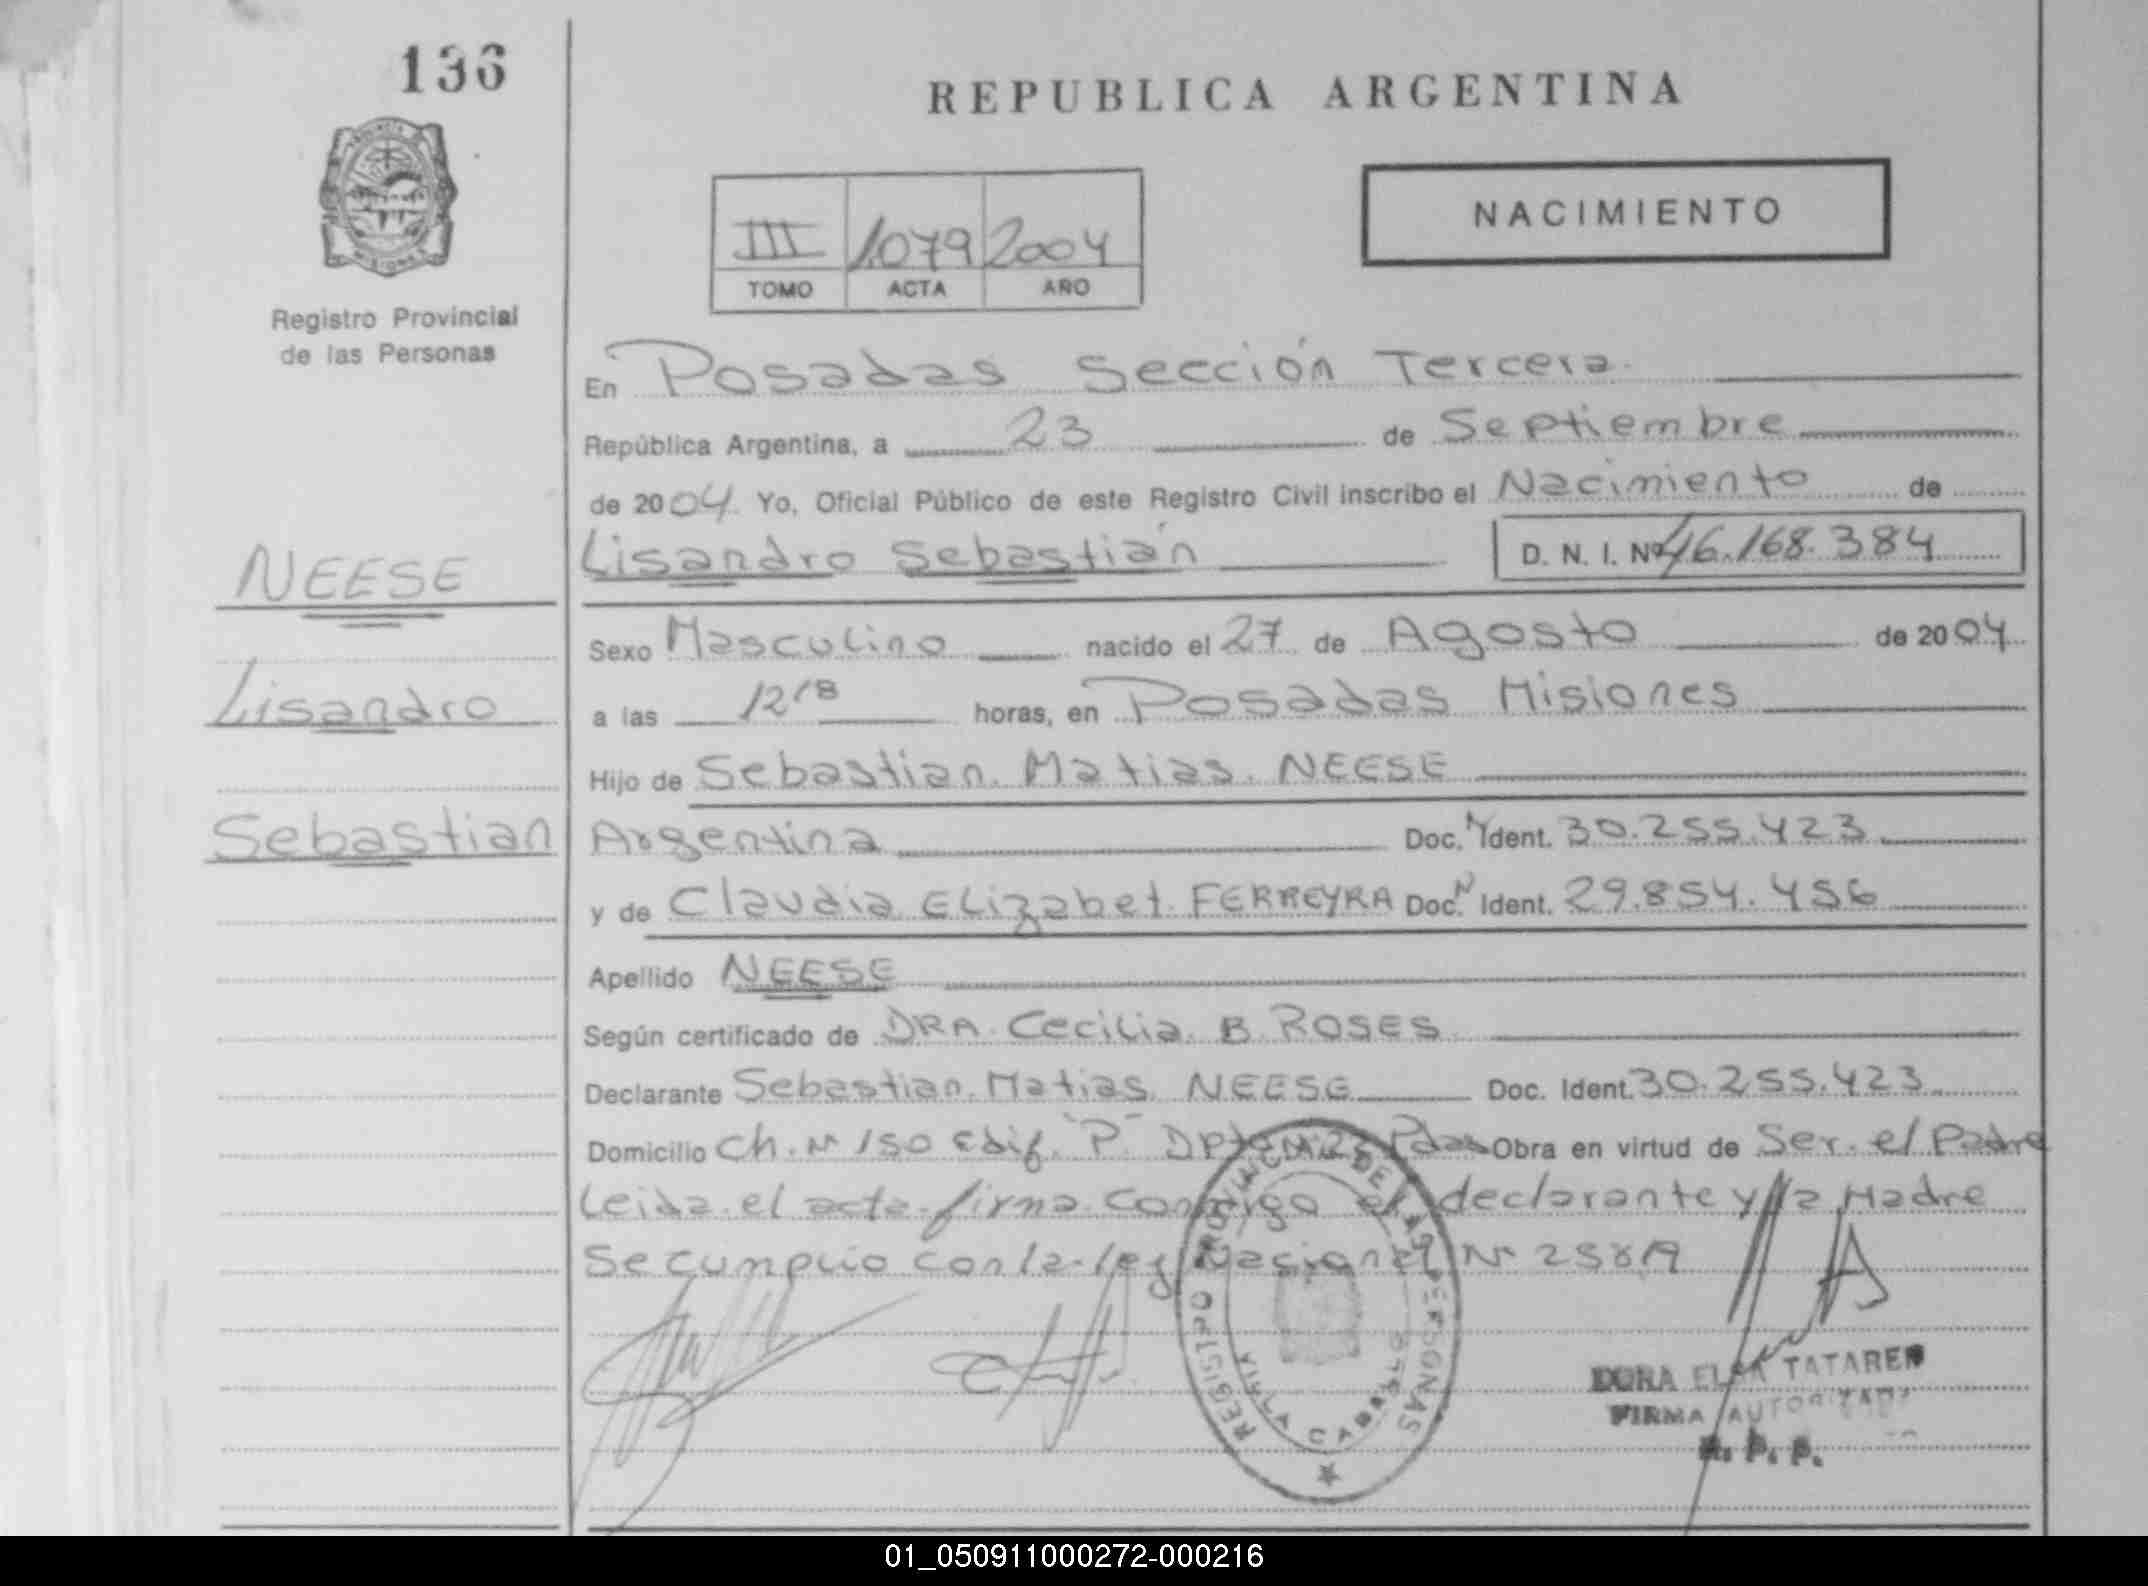 136
REPUBLICA ARGENTINA
PROVINCIA
MISIONES
Registro Provincial
de las Personas
III 1079 2004
TOMO ACTA AÑO
NACIMIENTO
En Posadas Sección Tercera
República Argentina, a 23 de Septiembre
de 2004 Yo, Oficial Público de este Registro Civil inscribo el Nacimiento de
Lisandro Sebastián D. N. I. Nº 46.168.384
NEESE
Sexo Masculino nacido el 27 de Agosto de 2004
Lisandro
a las 12 18 horas, en Posadas Misiones
Hijo de Sebastian Matias NEESE
Sebastian
Argentina Doc. N Ident. 30.255.423
y de Claudia Elizabet FERREYRA Doc. N Ident. 29.854.456
Apellido NEESE
Según certificado de DRA. Cecilia B ROSES
Declarante Sebastian Matias NEESE Doc. Ident. 30.255.423
Domicilio Ch. Nº 150 Edif. "P" Pdas Obra en virtud de Ser el Padre
Leida el acta firma conmigo el declarante y la Madre
Se cumplio con la ley Nacional Nº
REGISTRO PROVINCIAL DE LAS PERSONAS
DORA ELSA TATAREN
FIRMA AUTORIZADA
R. P. P.
01_050911000272-000216